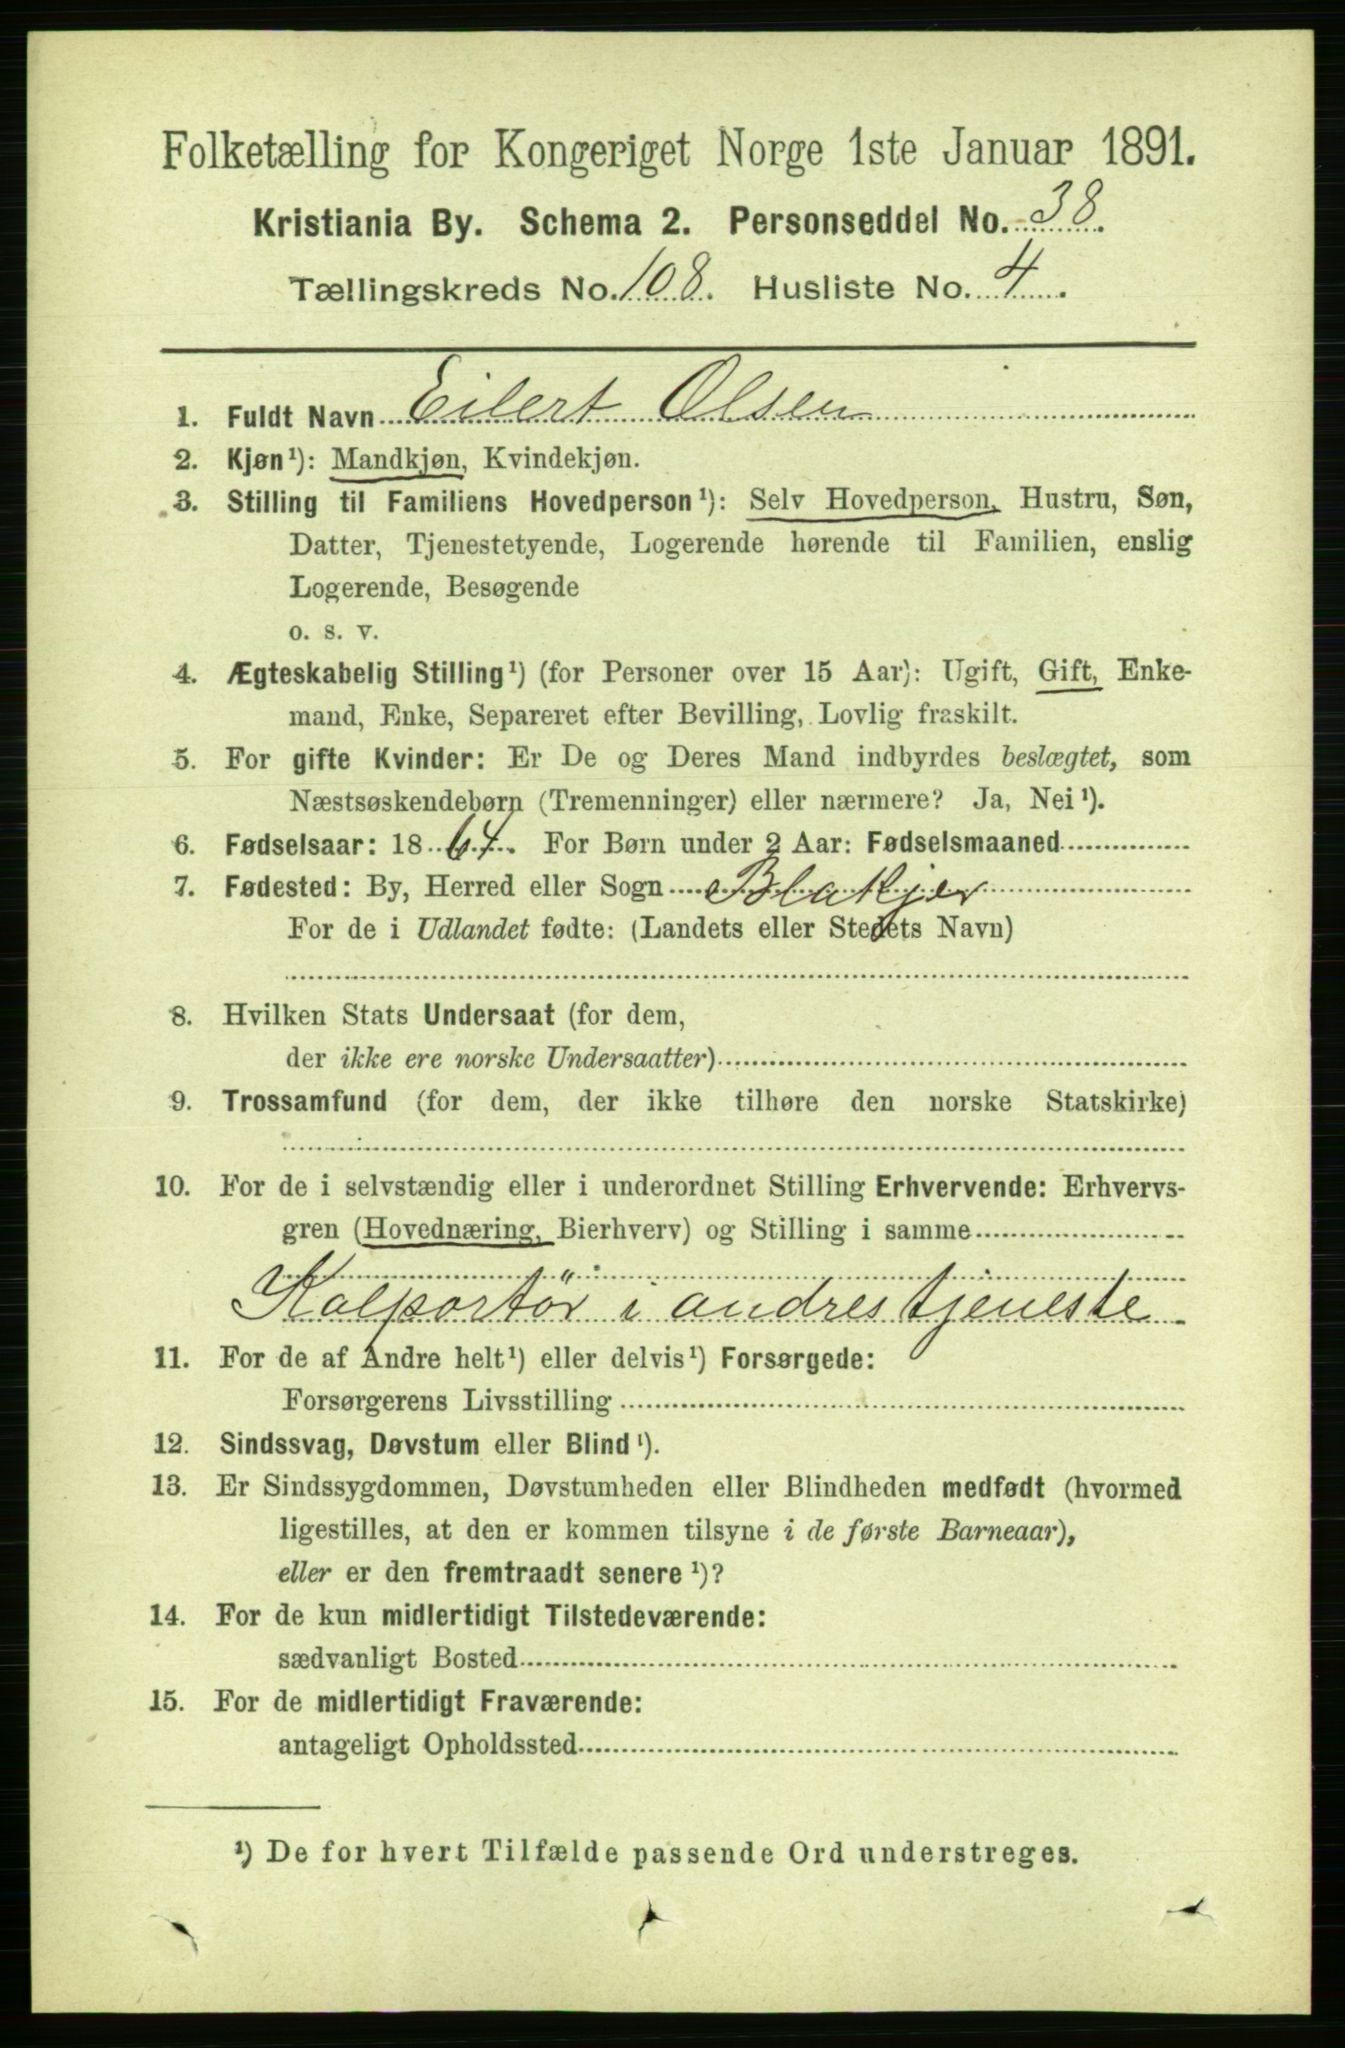 Folketælling for Kongeriget Norge 1ste Januar 1891.
Kristiania By. Schema 2. Personseddel No. 38.
Tællingskreds No. 108. Husliste No. 4.
1. Fuldt Navn Eilert Olsen
2. Kjøn¹): Mandkjøn, Kvindekjøn.
3. Stilling til Familiens Hovedperson¹): Selv Hovedperson, Hustru, Søn,
Datter, Tjenestetyende, Logerende hørende til Familien, enslig
Logerende, Besøgende
o. s. v.
4. Ægteskabelig Stilling¹) (for Personer over 15 Aar): Ugift, Gift, Enke-
mand, Enke, Separeret efter Bevilling, Lovlig fraskilt.
5. For gifte Kvinder: Er De og Deres Mand indbyrdes beslægtet, som
Næstsøskendebørn (Tremenninger) eller nærmere? Ja, Nei¹).
6. Fødselsaar: 1864. For Børn under 2 Aar: Fødselsmaaned
7. Fødested: By, Herred eller Sogn Blakjer
For de i Udlandet fødte: (Landets eller Stedets Navn)
8. Hvilken Stats Undersaat (for dem,
der ikke ere norske Undersaatter)
9. Trossamfund (for dem, der ikke tilhøre den norske Statskirke)
10. For de i selvstændig eller i underordnet Stilling Erhvervende: Erhvervs-
gren (Hovednæring, Bierhverv) og Stilling i samme
Kolportör i andres tjeneste
11. For de af Andre helt¹) eller delvis¹) Forsørgede:
Forsørgerens Livsstilling
12. Sindssvag, Døvstum eller Blind¹).
13. Er Sindssygdommen, Døvstumheden eller Blindheden medfødt (hvormed
ligestilles, at den er kommen tilsyne i de første Barneaar),
eller er den fremtraadt senere¹)?
14. For de kun midlertidigt Tilstedeværende:
sædvanligt Bosted
15. For de midlertidigt Fraværende:
antageligt Opholdssted
¹) De for hvert Tilfælde passende Ord understreges.